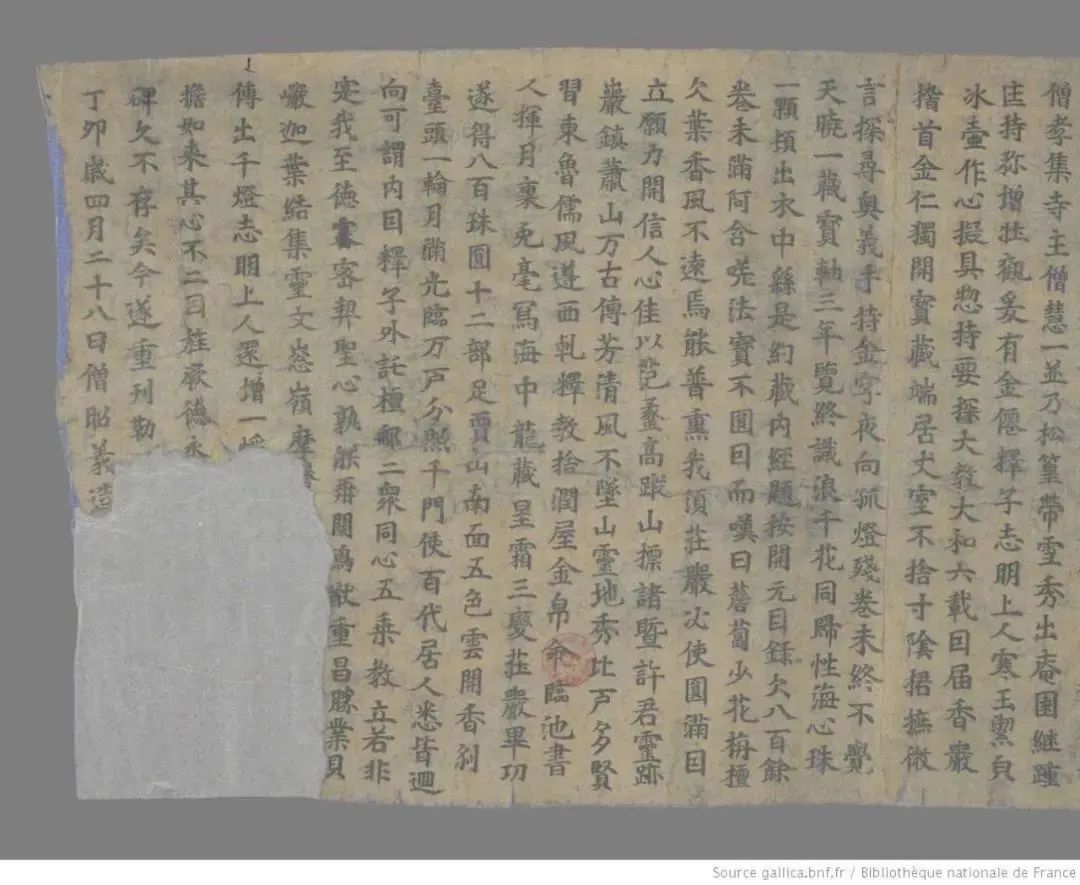 僧孝集寺主僧慧一並乃松篁帶雪秀出庵園継踵
住持弥增壯觀爰有金僊釋子志明上人寒玉㓗皃
冰壷作心擬具惣持要探大教大和六載因届香巖
稽首金仁獨開寶藏端居丈室不捨寸陰捃摭微
言探尋奥義手持金字夜向孤燈殘卷未終不覺
天曉一藏寶軸三年覽終識浪千花同歸性海心珠
一顆頓出衣中繇是約藏内經題按開元目録欠八百餘
卷未滿阿含嗟法寶不圓因而嘆曰薝蔔少花栴檀
欠葉香風不遠焉能普熏我須莊嚴必使圓滿因
立願力開信人心佳以范蠡高蹤山摽諸暨許君靈跡
巖鎮蕭山万古傳芳清風不墜山靈地秀比戸多賢
習東魯儒風遵西軋釋教捨潤屋金帛命臨池書
人揮月裏兎毫冩海中龍藏星霜三變莊嚴畢功
遂得八百珠圓十二部足賈山南面五色雲開香刹
臺頭一輪月滿光臨万戸分照千門使百代居人悉皆迴
向可謂内因釋子外託檀那二衆同心五乗教立若非
寔我至德寔密契聖心孰能再闡鴻猷重昌勝業貝
巖迦葉結集靈文葱嶺摩
傳出千燈志明上人還增一
擔如来其心不二因旌厥德永
碑久不存矣今遂重刊勒
丁卯歲四月二十八日僧昭義造
Source gallica.bnf.fr / Bibliothèque nationale de France